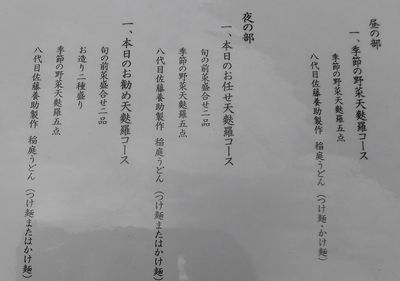 昼の部
一、季節の野菜天麩羅コース
季節の野菜天麩羅五点
八代目佐藤養助製作 稲庭うどん（つけ麺・かけ麺）
夜の部
一、本日のお任せ天麩羅コース
旬の前菜盛合せ二品
季節の野菜天麩羅五点
八代目佐藤養助製作 稲庭うどん（つけ麺またはかけ麺）
一、本日のお勧め天麩羅コース
旬の前菜盛合せ二品
お造り二種盛り
季節の野菜天麩羅五点
八代目佐藤養助製作 稲庭うどん（つけ麺またはかけ麺）